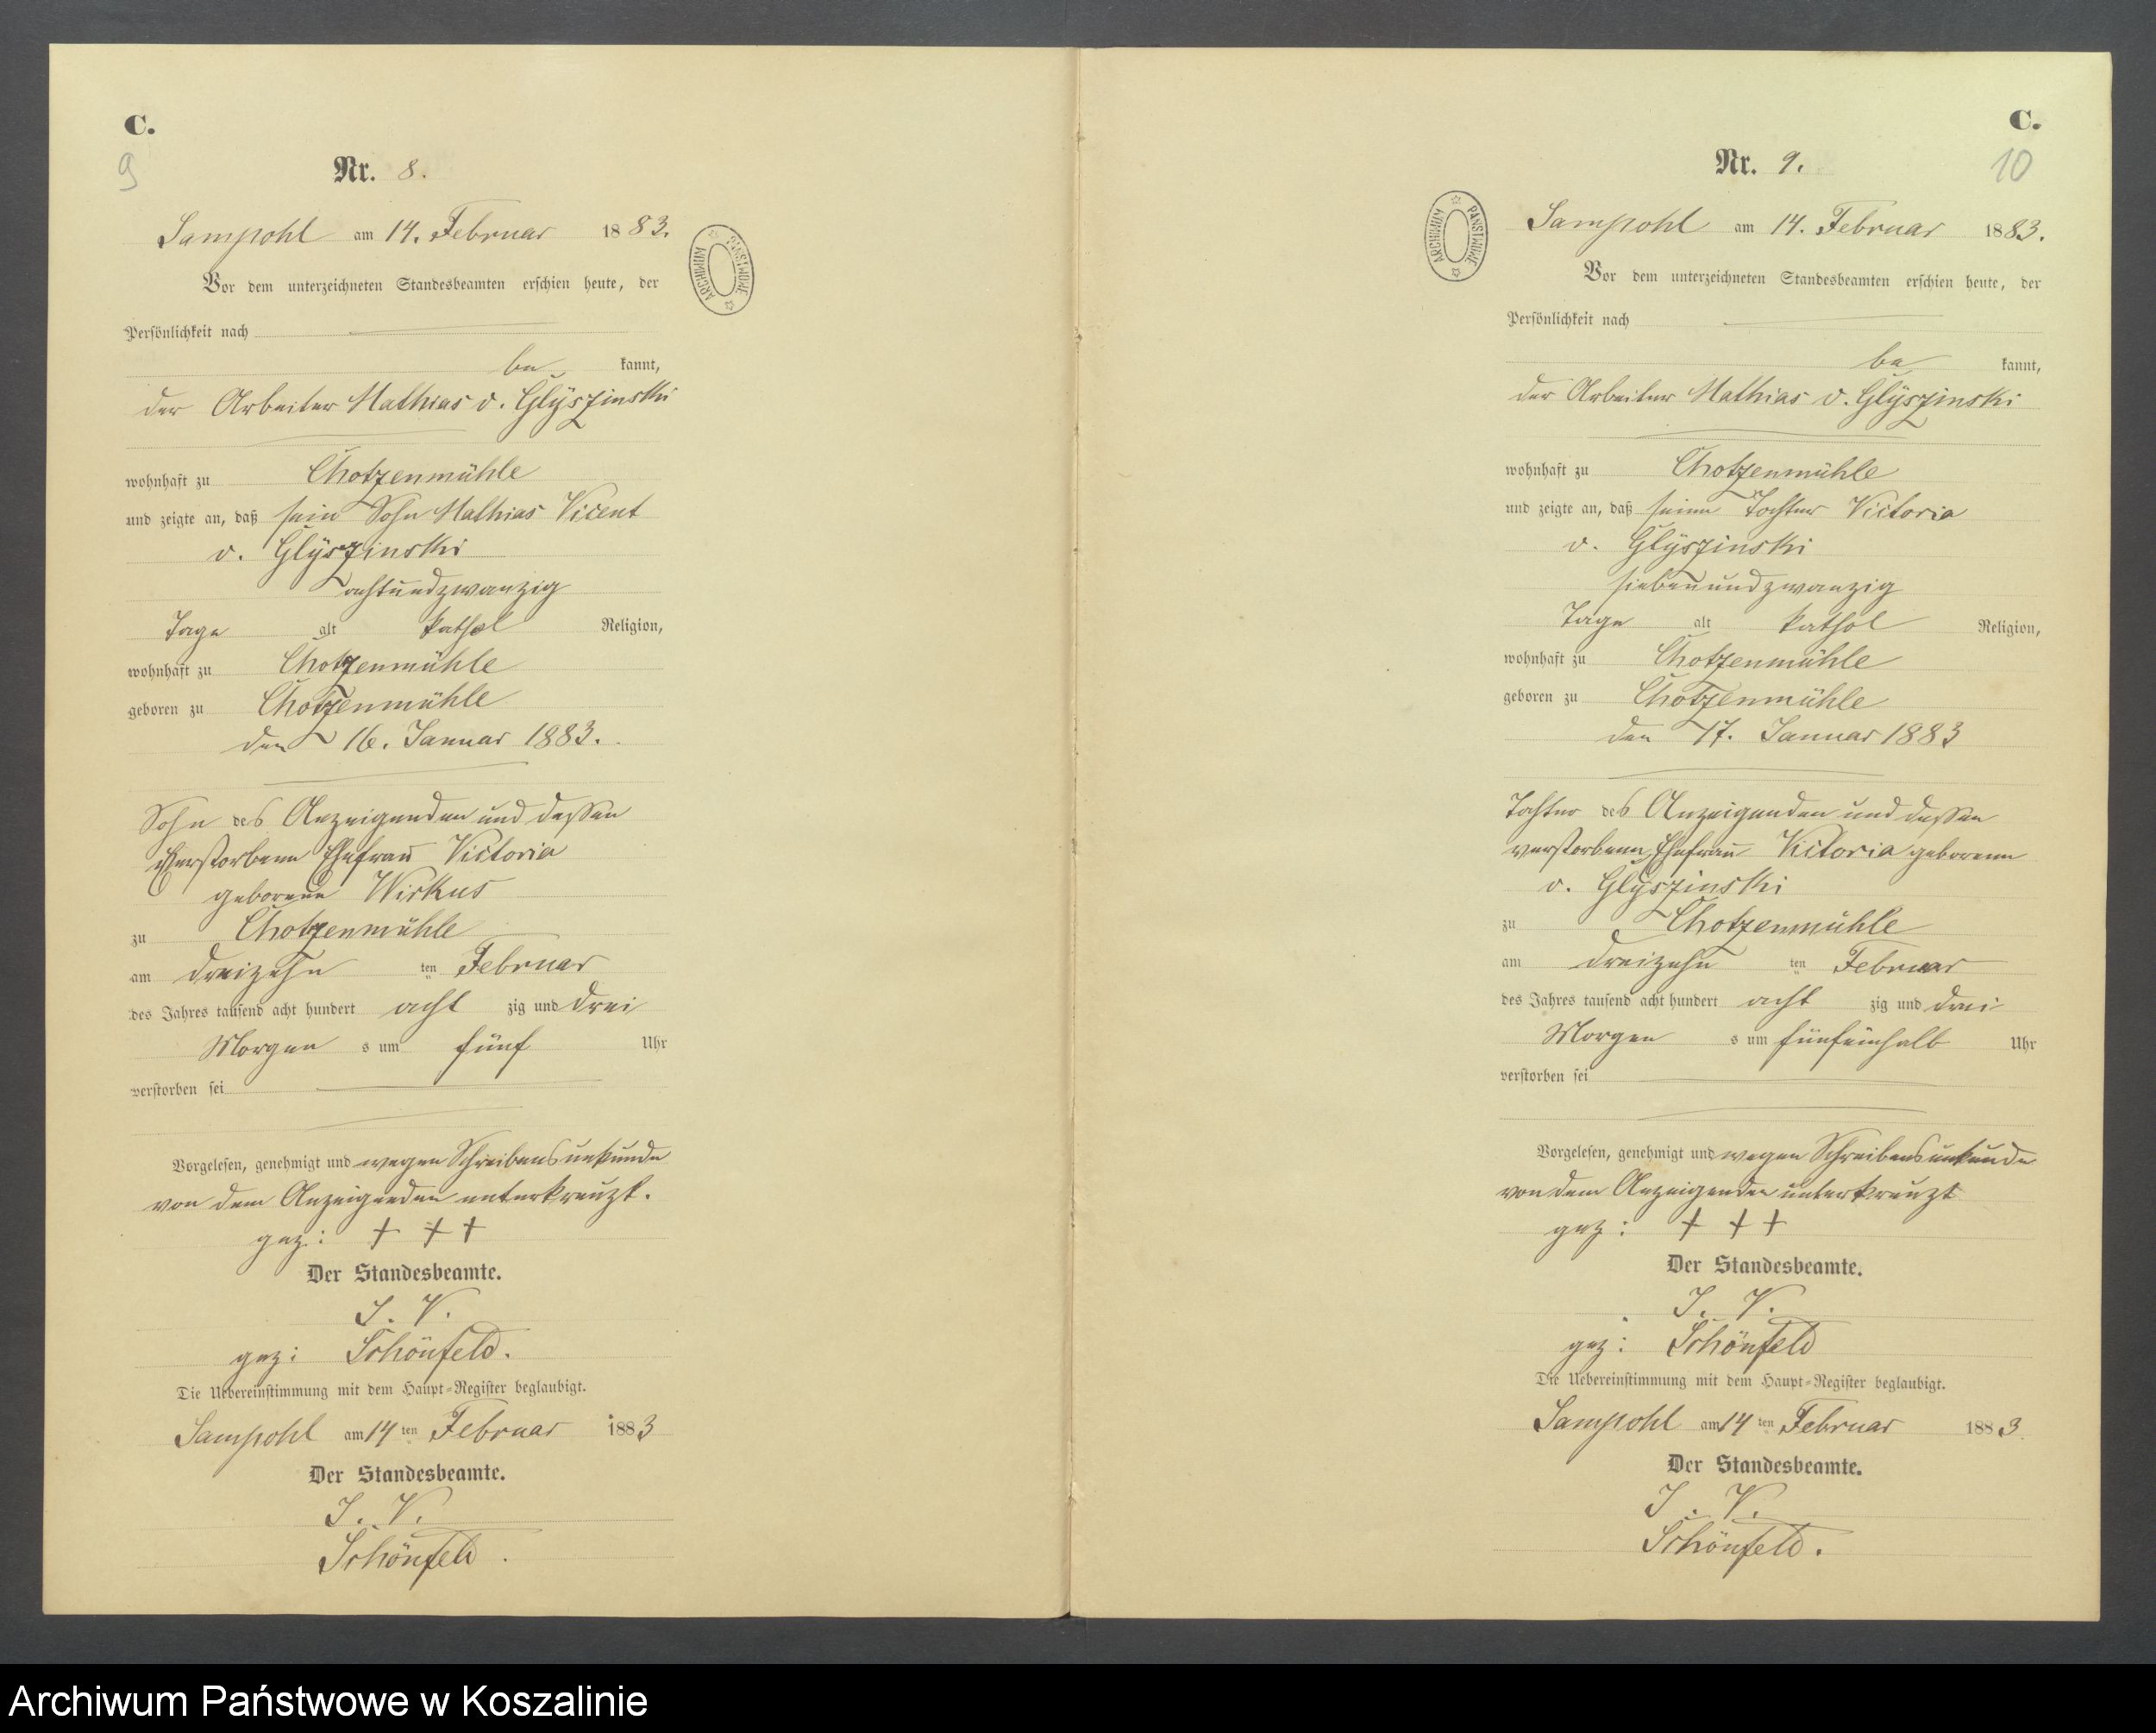 C.
9
Nr. 8.
Sampohl am 14. Februar 1883.
ARCHIWUM PAŃSTWOWE
Vor dem unterzeichneten Standesbeamten erschien heute, der
Persönlichkeit nach
be kannt,
der Arbeiter Mathias v. Glÿszinski
wohnhaft zu Chotzenmühle
und zeigte an, daß sein Sohn Mathias Vicent
v. Glÿszinski
achtundzwanzig
Tage alt kathol Religion,
wohnhaft zu Chotzenmühle
geboren zu Chotzenmühle
den 16. Januar 1883.
Sohn des Anzeigenden und dessen
verstorbene Ehefrau Victoria
geborene Wirkus
zu Chotzenmühle
am dreizehn ten Februar
des Jahres tausend acht hundert acht zig und drei
Morgen s um fünf Uhr
verstorben sei
Vorgelesen, genehmigt und wegen Schreibensunkunde
von dem Anzeigenden unterkreuzt.
gez: + + +
Der Standesbeamte.
J. V.
gez: Schönfeld.
Die Uebereinstimmung mit dem Haupt-Register beglaubigt.
Sampohl am 14 ten Februar 1883
Der Standesbeamte.
J. V.
Schönfeld.
C.
10
Nr. 9.
Sampohl am 14. Februar 1883.
ARCHIWUM PAŃSTWOWE
Vor dem unterzeichneten Standesbeamten erschien heute, der
Persönlichkeit nach
be kannt,
der Arbeiter Mathias v. Glÿszinski
wohnhaft zu Chotzenmühle
und zeigte an, daß seine Tochter Victoria
v. Glÿszinski
siebenundzwanzig
Tage alt kathol Religion,
wohnhaft zu Chotzenmühle
geboren zu Chotzenmühle
den 17. Januar 1883
Tochter des Anzeigenden und dessen
verstorbene Ehefrau Victoria geborene
v. Glÿszinski
zu Chotzenmühle
am dreizehn ten Februar
des Jahres tausend acht hundert acht zig und drei
Morgen s um fünfeinhalb Uhr
verstorben sei
Vorgelesen, genehmigt und wegen Schreibensunkunde
von dem Anzeigenden unterkreuzt
gez: + + +
Der Standesbeamte.
J. V.
gez: Schönfeld
Die Uebereinstimmung mit dem Haupt-Register beglaubigt.
Sampohl am 14 ten Februar 1883
Der Standesbeamte.
J. V.
Schönfeld.
Archiwum Państwowe w Koszalinie